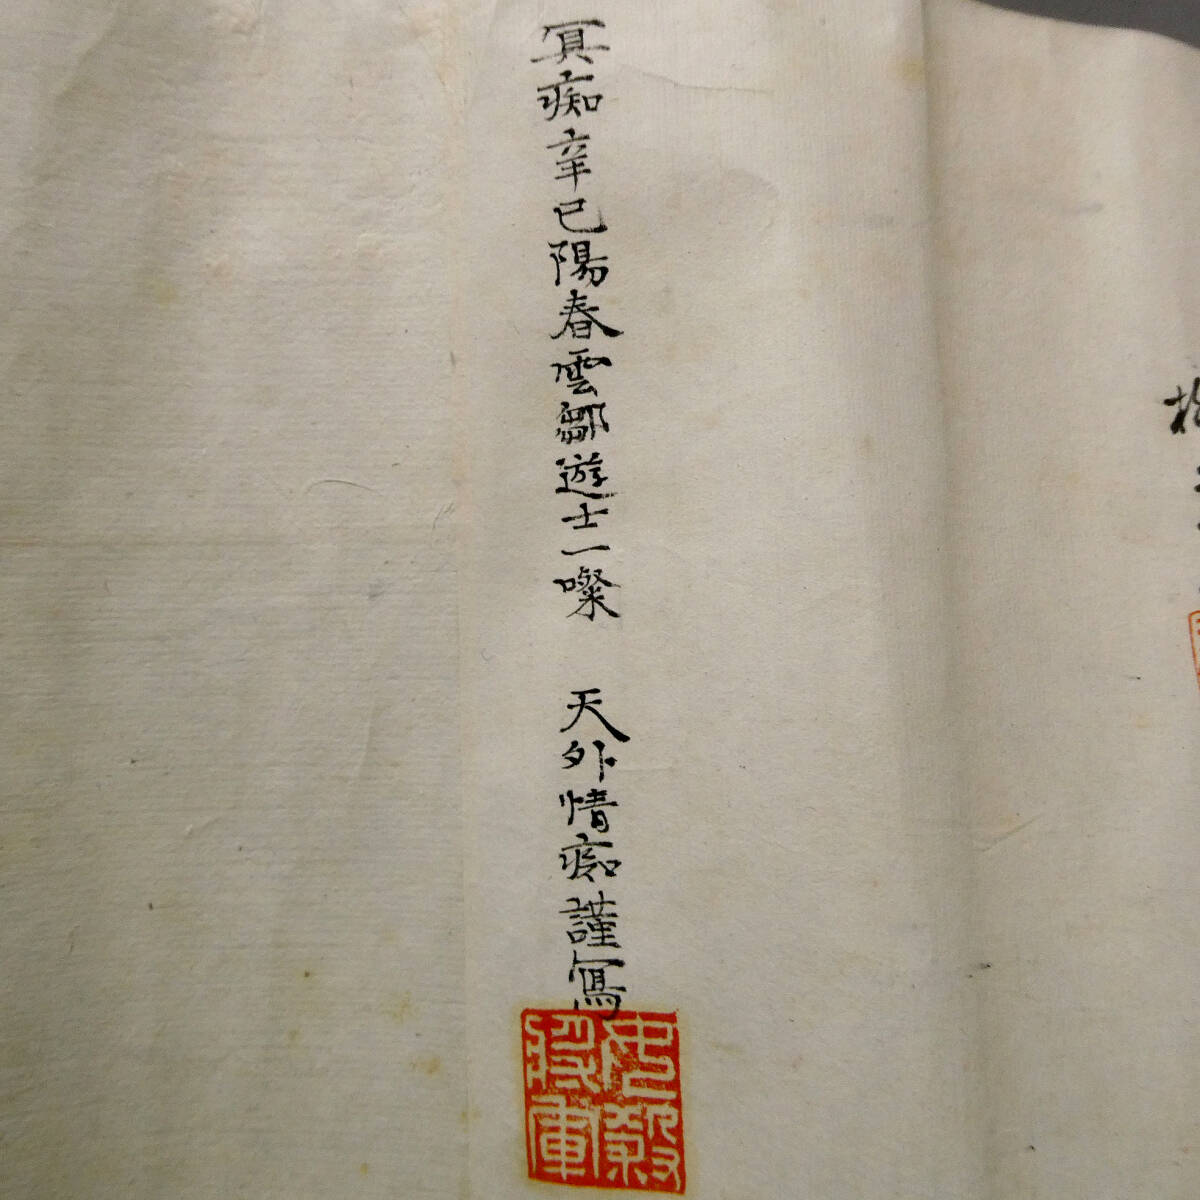 冥痴辛巳陽春雲鄒遊士一噿 天外情痴謹寫
將軍